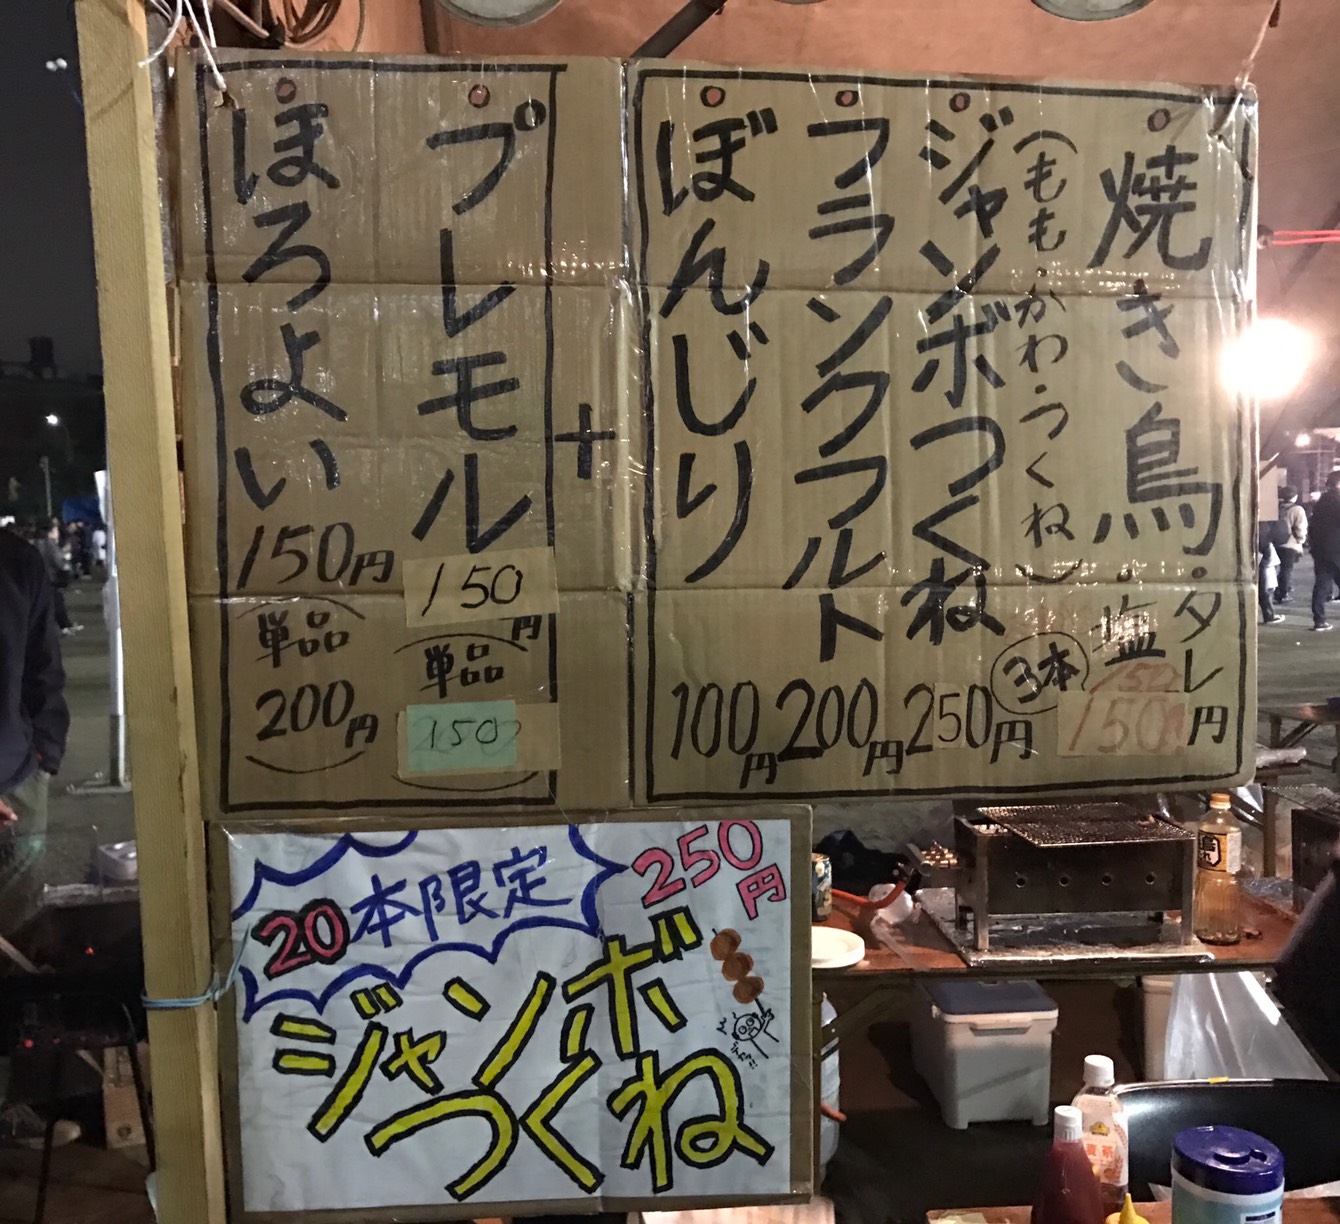 ・焼き鳥・タレ
・塩
150
150円
(もも・かわ・つくね)
3本
ジャンボつくね
250円
フランクフルト
200円
ぼんじり
100円
+
プレモル
150円
(単品
150)
ほろよい
150円
(単品
200円)
20本限定
250円
ジャンボ
つくね